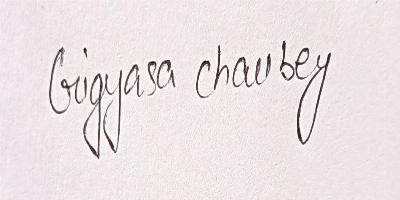 Gigyasa chaubey